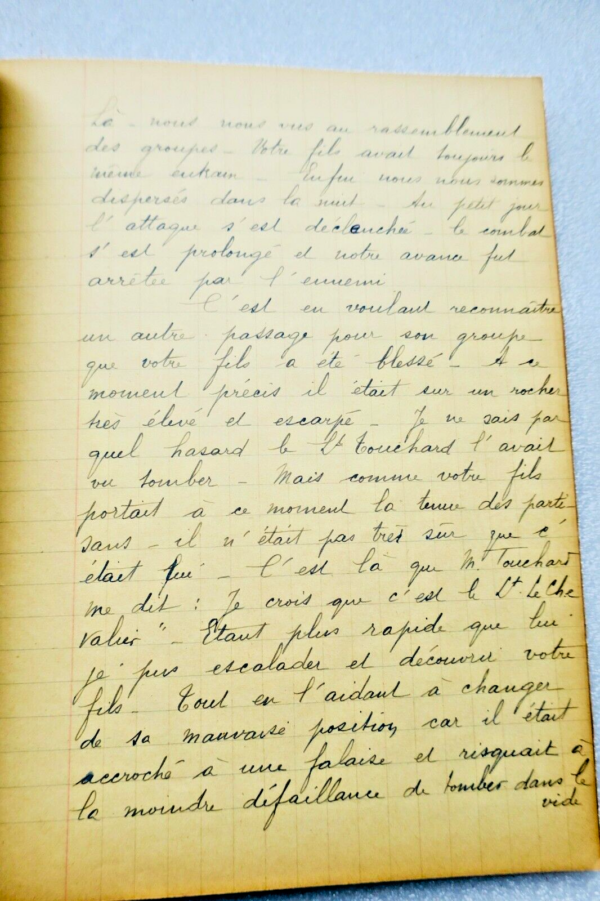 Là - nous nous vus au rassemblement
des groupes - Votre fils avait toujours le
même entrain - Enfin nous nous sommes
dispersés dans la nuit - Au petit jour
l'attaque s'est déclenchée - le combat
s'est prolongé et notre avance fut
arrêtée par l'ennemi.
C'est en voulant reconnaître
un autre passage pour son groupe
que votre fils a été blessé - A ce
moment précis il était sur un rocher
très élevé et escarpé - Je ne sais par
quel hasard le Lt Touchard l'avait
vu tomber - Mais comme votre fils
portait à ce moment la tenue des parti-
sans - il n'était pas très sûr que c'
était lui - C'est là que M. Touchard
me dit : Je crois que c'est le Lt. Le Che
valier" - Etant plus rapide que lui
je pus escalader et découvrir votre
fils - Tout en l'aidant à changer
de sa mauvaise position car il était
accroché à une falaise et risquait à
la moindre défaillance de tomber dans le
vide